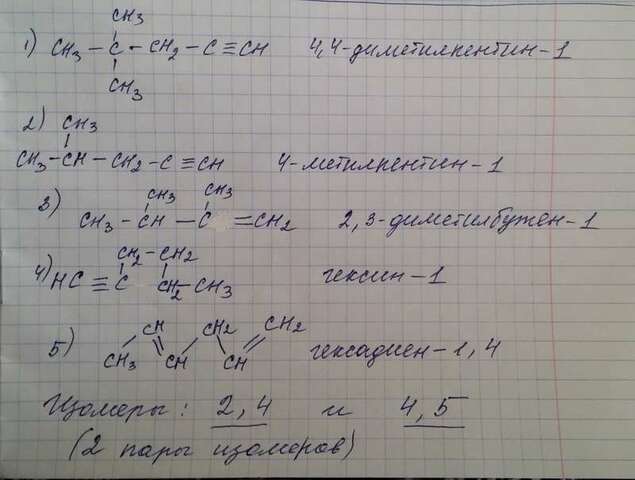 CH3
1) CH3 - C - CH2 - C ≡ CH 4,4-диметилпентин-1
CH3
2) CH3
CH3 - CH - CH2 - C ≡ CH 4-метилпентин-1
CH3 CH3
3) CH3 - CH - C = CH2 2,3-диметилбутен-1
CH2 - CH2
4) HC ≡ C CH2 - CH3 гексин-1
CH CH2 CH2
5) CH3 CH CH гексадиен-1,4
Изомеры: 2,4 и 4,5
(2 пары изомеров)